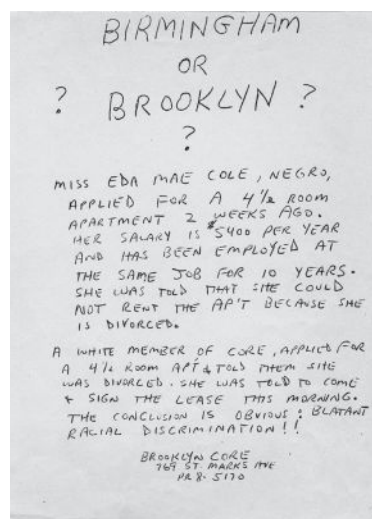 BIRMINGHAM
OR
? BROOKLYN ?
?
MISS EDA MAE COLE, NEGRO,
APPLIED FOR A 4½ ROOM
APARTMENT 2 WEEKS AGO.
HER SALARY IS $5400 PER YEAR
AND HAS BEEN EMPLOYED AT
THE SAME JOB FOR 10 YEARS.
SHE WAS TOLD THAT SHE COULD
NOT RENT THE AP'T BECAUSE SHE
IS DIVORCED.
A WHITE MEMBER OF CORE, APPLIED FOR
A 4½ ROOM APT & TOLD THEM SHE
WAS DIVORCED. SHE WAS TOLD TO COME
& SIGN THE LEASE THIS MORNING.
THE CONCLUSION IS OBVIOUS: BLATANT
RACIAL DISCRIMINATION!!
BROOKLYN CORE
769 ST. MARKS AVE
PR 8-5170